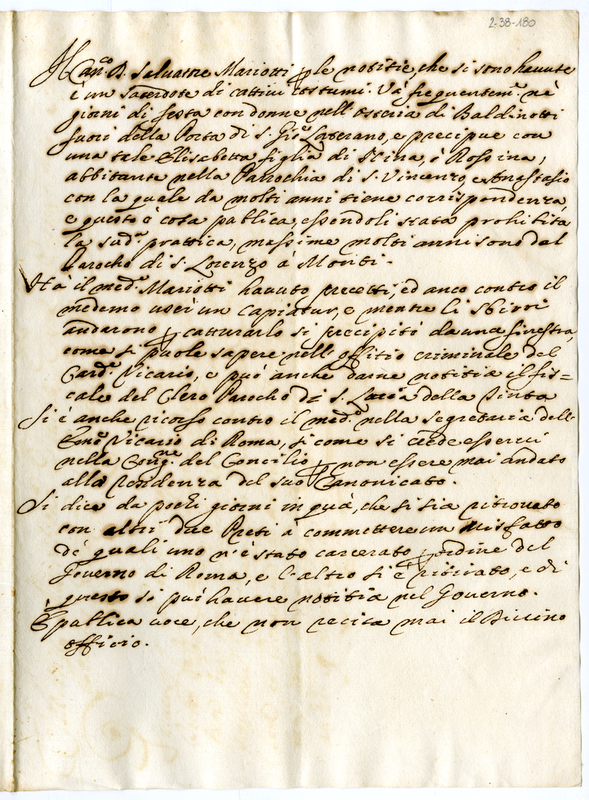 2-38-180
Il Can.co D. Salvatore Mariotti p le notitie, che si sono havute
è un Sacerdote di cattivi costumi. Và frequentem.e ne
giorni di festa con donne nell'osteria di Baldinotti
fuori della Porta di S. Gio: Laterano, e precipue con
una tale Elisabetta figlia di Stina, ò Rossina,
abbitante nella Parochia di S. Vincenzo, e Anastasio
con la quale da molti anni tiene corrispondenza
e questo è cosa publica, essendoli stata prohibita
la sud.a prattica, massime molti anni sono dal
Parocho di S. Lorenzo à Monti.
Hà il med.o Mariotti havuto precetti, ed anco contro il
medemo uscì un capiatur, e mentre li Sbirri
andarono p catturarlo si precipitò da una finestra,
come si puole sapere nell'offitio criminale del
Card. Vicario, e può anche darne notitia il fis=
cale del Clero Parocho di S. Lucia della Tinta
Si è anche ricorso contro il med.o nella segretaria dell'
Em.o Vicario di Roma, si come si crede esserci
nella Cong.ne del Concilio p non essere mai andato
alla residenza del suo Canonicato.
Si dice da pochi giorni in quà, che si sia ritrovato
con altri due Preti à commettere un misfatto
de quali uno n'è stato carcerato p ordine del
Governo di Roma, e l'altro si è ritirato, e di
questo si può havere notitia nel Governo.
È publica voce, che non recita mai il Divino
officio.